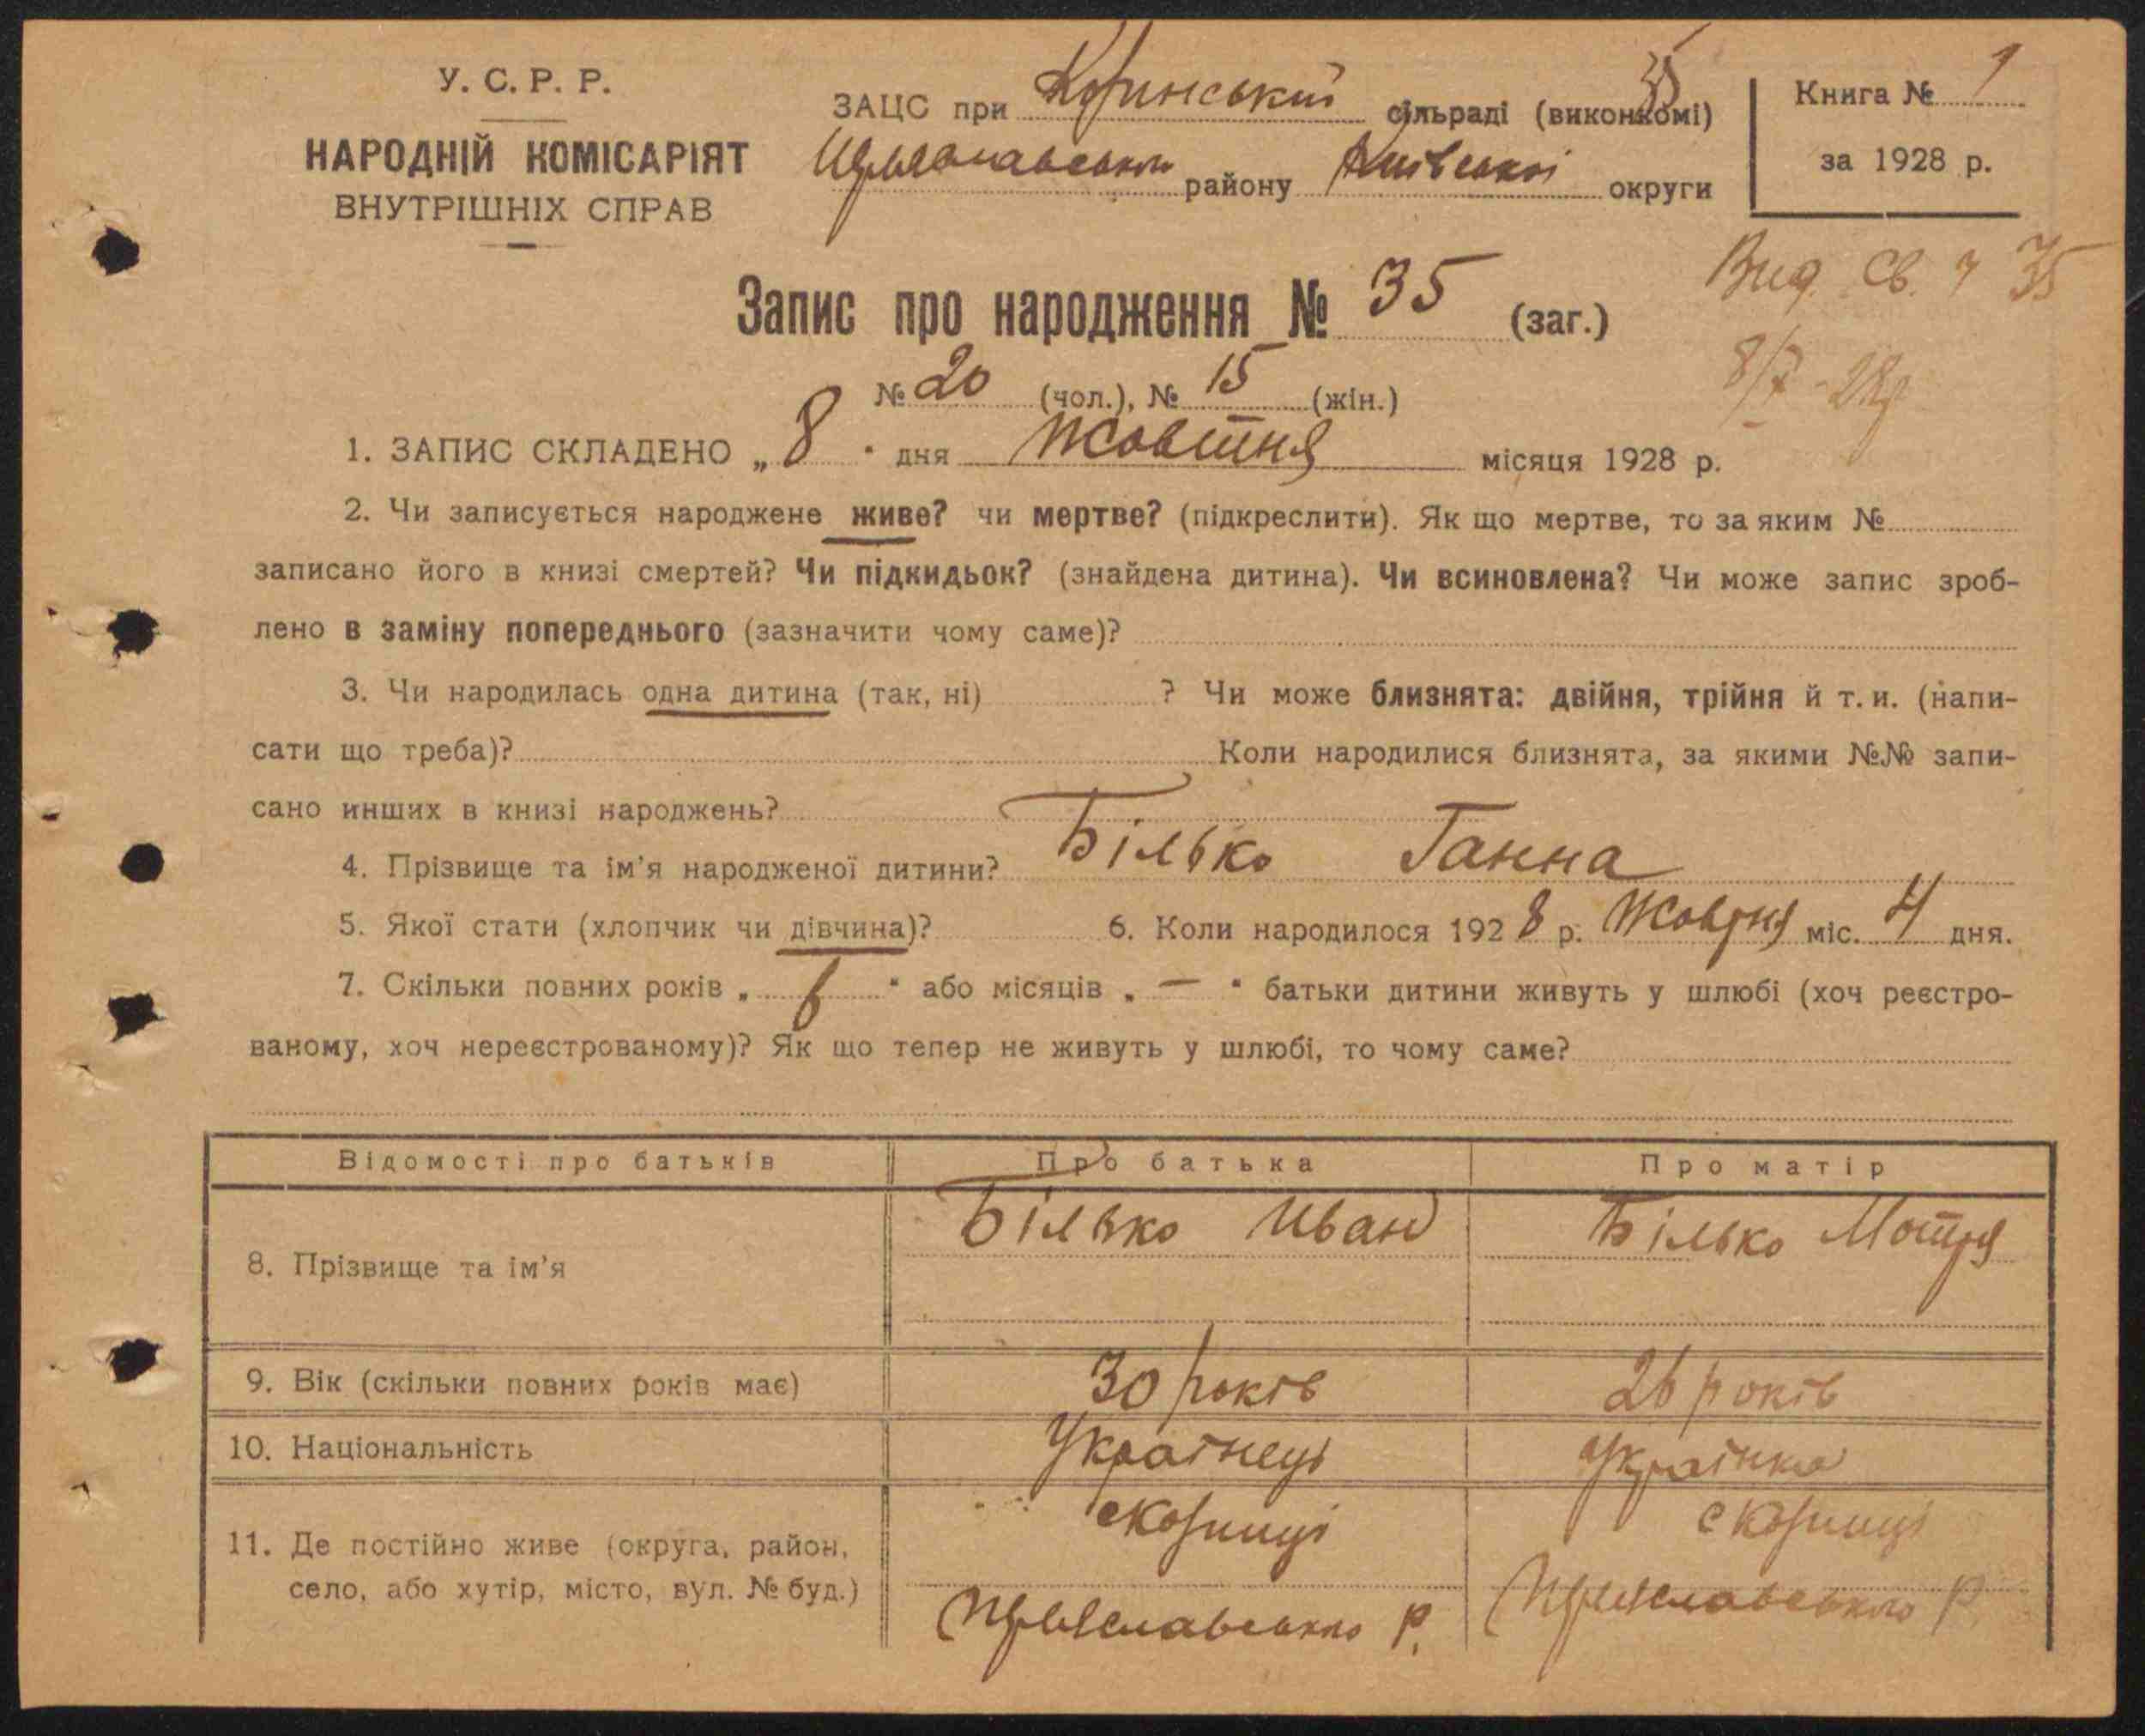 У. С. Р. Р.
НАРОДНІЙ КОМІСАРІЯТ
ВНУТРІШНІХ СПРАВ
ЗАЦС при сільраді (виконкомі)
35
району Київської округи
Книга № 1
за 1928 р.
Запис про народження № 35 (заг.)
Вид. Св. 35
№ 20 (чол.), № 15 (жін.)
1. ЗАПИС СКЛАДЕНО „ 8 " дня Жовтня місяця 1928 р.
2. Чи записується народжене живе? чи мертве? (підкреслити). Як що мертве, то за яким №
записано його в книзі смертей? Чи підкидьок? (знайдена дитина). Чи всиновлена? Чи може запис зроб-
лено в заміну попереднього (зазначити чому саме)?
3. Чи народилась одна дитина (так, ні) ? Чи може близнята: двійня, трійня й т. и. (напи-
сати що треба)? Коли народилися близнята, за якими №№ запи-
сано инших в книзі народжень?
4. Прізвище та ім'я народженої дитини? Білько Ганна
5. Якої стати (хлопчик чи дівчина)? 6. Коли народилося 1928 р. Жовтня міс. 4 дня.
7. Скільки повних років „ " або місяців „ — " батьки дитини живуть у шлюбі (хоч реєстро-
ваному, хоч нереєстрованому)? Як що тепер не живуть у шлюбі, то чому саме?
Відомості про батьків Про батька Про матір
8. Прізвище та ім'я Білько Иван Білько Мотря
9. Вік (скільки повних років має) 30 років 26 років
10. Національність Українець Українка
11. Де постійно живе (округа, район,
село, або хутір, місто, вул. № буд.)
с Корпиці с Корпиці
р. р.